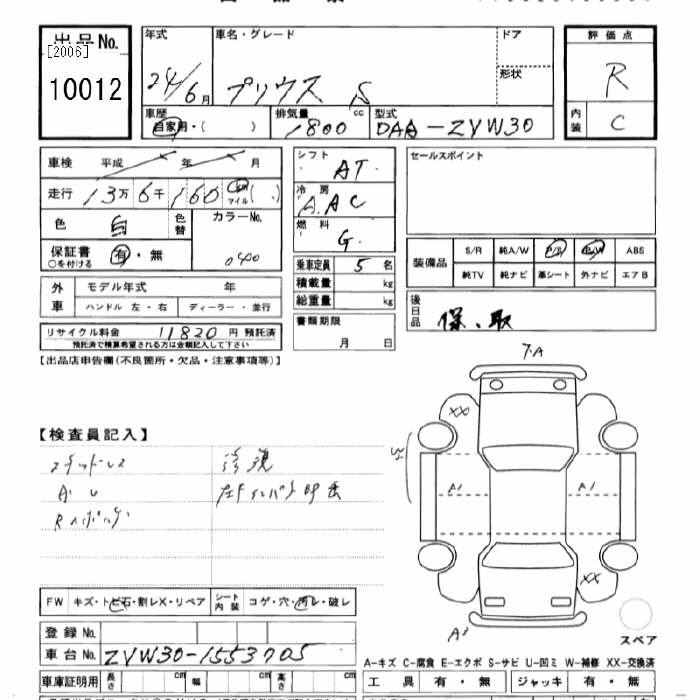 出品No.
[2006]
10012
年式
24/6月
車名・グレード
プリウス S
ドア
形状
評価点
R
内装 C
車歴
自家用・( )
排気量
1800 cc
型式
DAA-ZVW30
車検 平成 年 月
走行 13万 6千 160 マイル( )
色 白 色替
カラーNo.
040
保証書 有・無
○を付ける
シフト
AT
冷房
AAC
燃料
G
乗車定員 5 名
積載量 kg
総重量 kg
書類期限
月 日
セールスポイント
装備品
S/R 純A/W P/S P/W ABS
純TV 純ナビ 革シート 外ナビ エアB
後日品
保、取
外車
モデル年式 年
ハンドル 左・右 ディーラー・並行
リサイクル料金 11820 円 預託済
預託済で精算希望される方は金額記入して下さい
【出品店申告欄(不良箇所・欠品・注意事項等)】
【検査員記入】
FW キズ・トビ石・割レX・リペア
シート内装 コゲ・穴・汚レ・破レ
登録No.
車台No. ZVW30-1553705
車庫証明用 長さ cm 幅 cm 高さ cm
XX
A1
A1
XX
スペア
A-キズ C-腐食 E-エクボ S-サビ U-凹ミ W-補修 XX-交換済
工具 有・無 ジャッキ 有・無